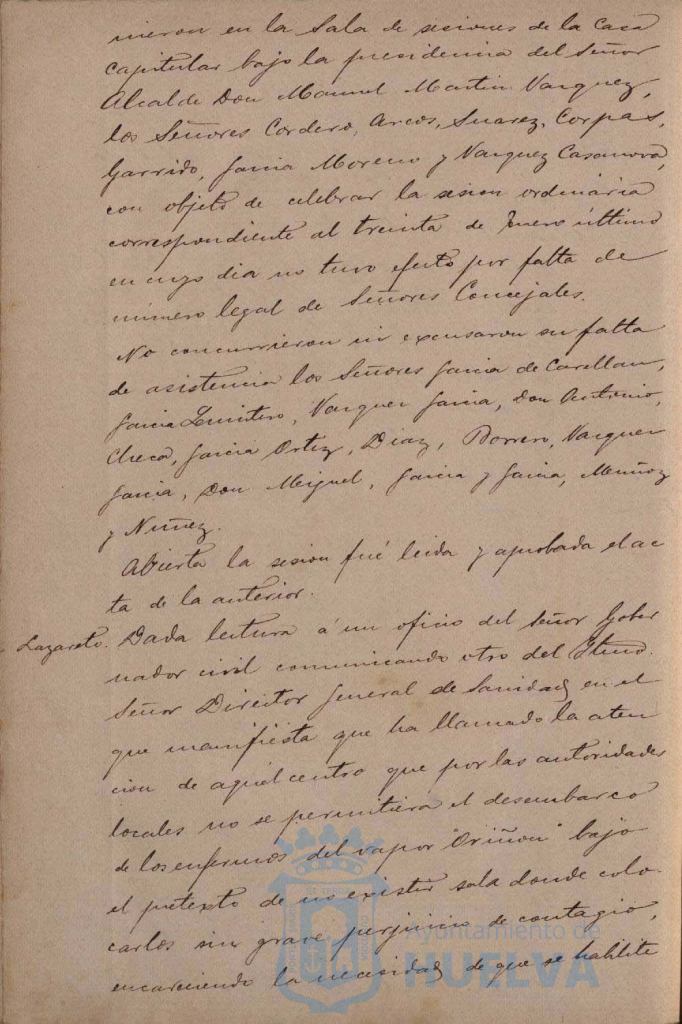 nieron en la Sala de sesiones de la Casa
capitular bajo la presidencia del Señor
Alcalde Don Manuel Martin Vazquez,
los Señores Cordero, Arcos, Suarez, Corpas,
Garrido, Garcia Moreno y Vazquez Casanova,
con objeto de celebrar la sesion ordinaria
correspondiente al treinta de Enero último
en cuyo dia no tuvo efecto por falta de
número legal de Señores Concejales.
No concurrieron ni excusaron su falta
de asistencia los Señores Garcia de
Garcia Vazquez Garcia, Don Antonio,
Checa, Garcia Ortiz, Diaz, Borrero, Vazquez
Garcia, Don Miguel, Garcia y Garcia, Muñoz
y Nuñez.
Abierta la sesion fué leida y aprobada el ac
ta de la anterior.
Lazareto. Dada lectura á un oficio del Señor Gober
nador civil comunicando otro del Iltmo.
Señor Director General de Sanidad en el
que manifiesta que ha llamado la aten
cion de aquel centro que por las autoridades
locales no se permitiera el desembarco
de los enfermos del vapor "Oriñon" bajo
el pretexto de no existir sala donde colo-
carlos sin grave perjuicio de contagio,
encareciendo la necesidad de que se habilite
Ayuntamiento de
HUELVA